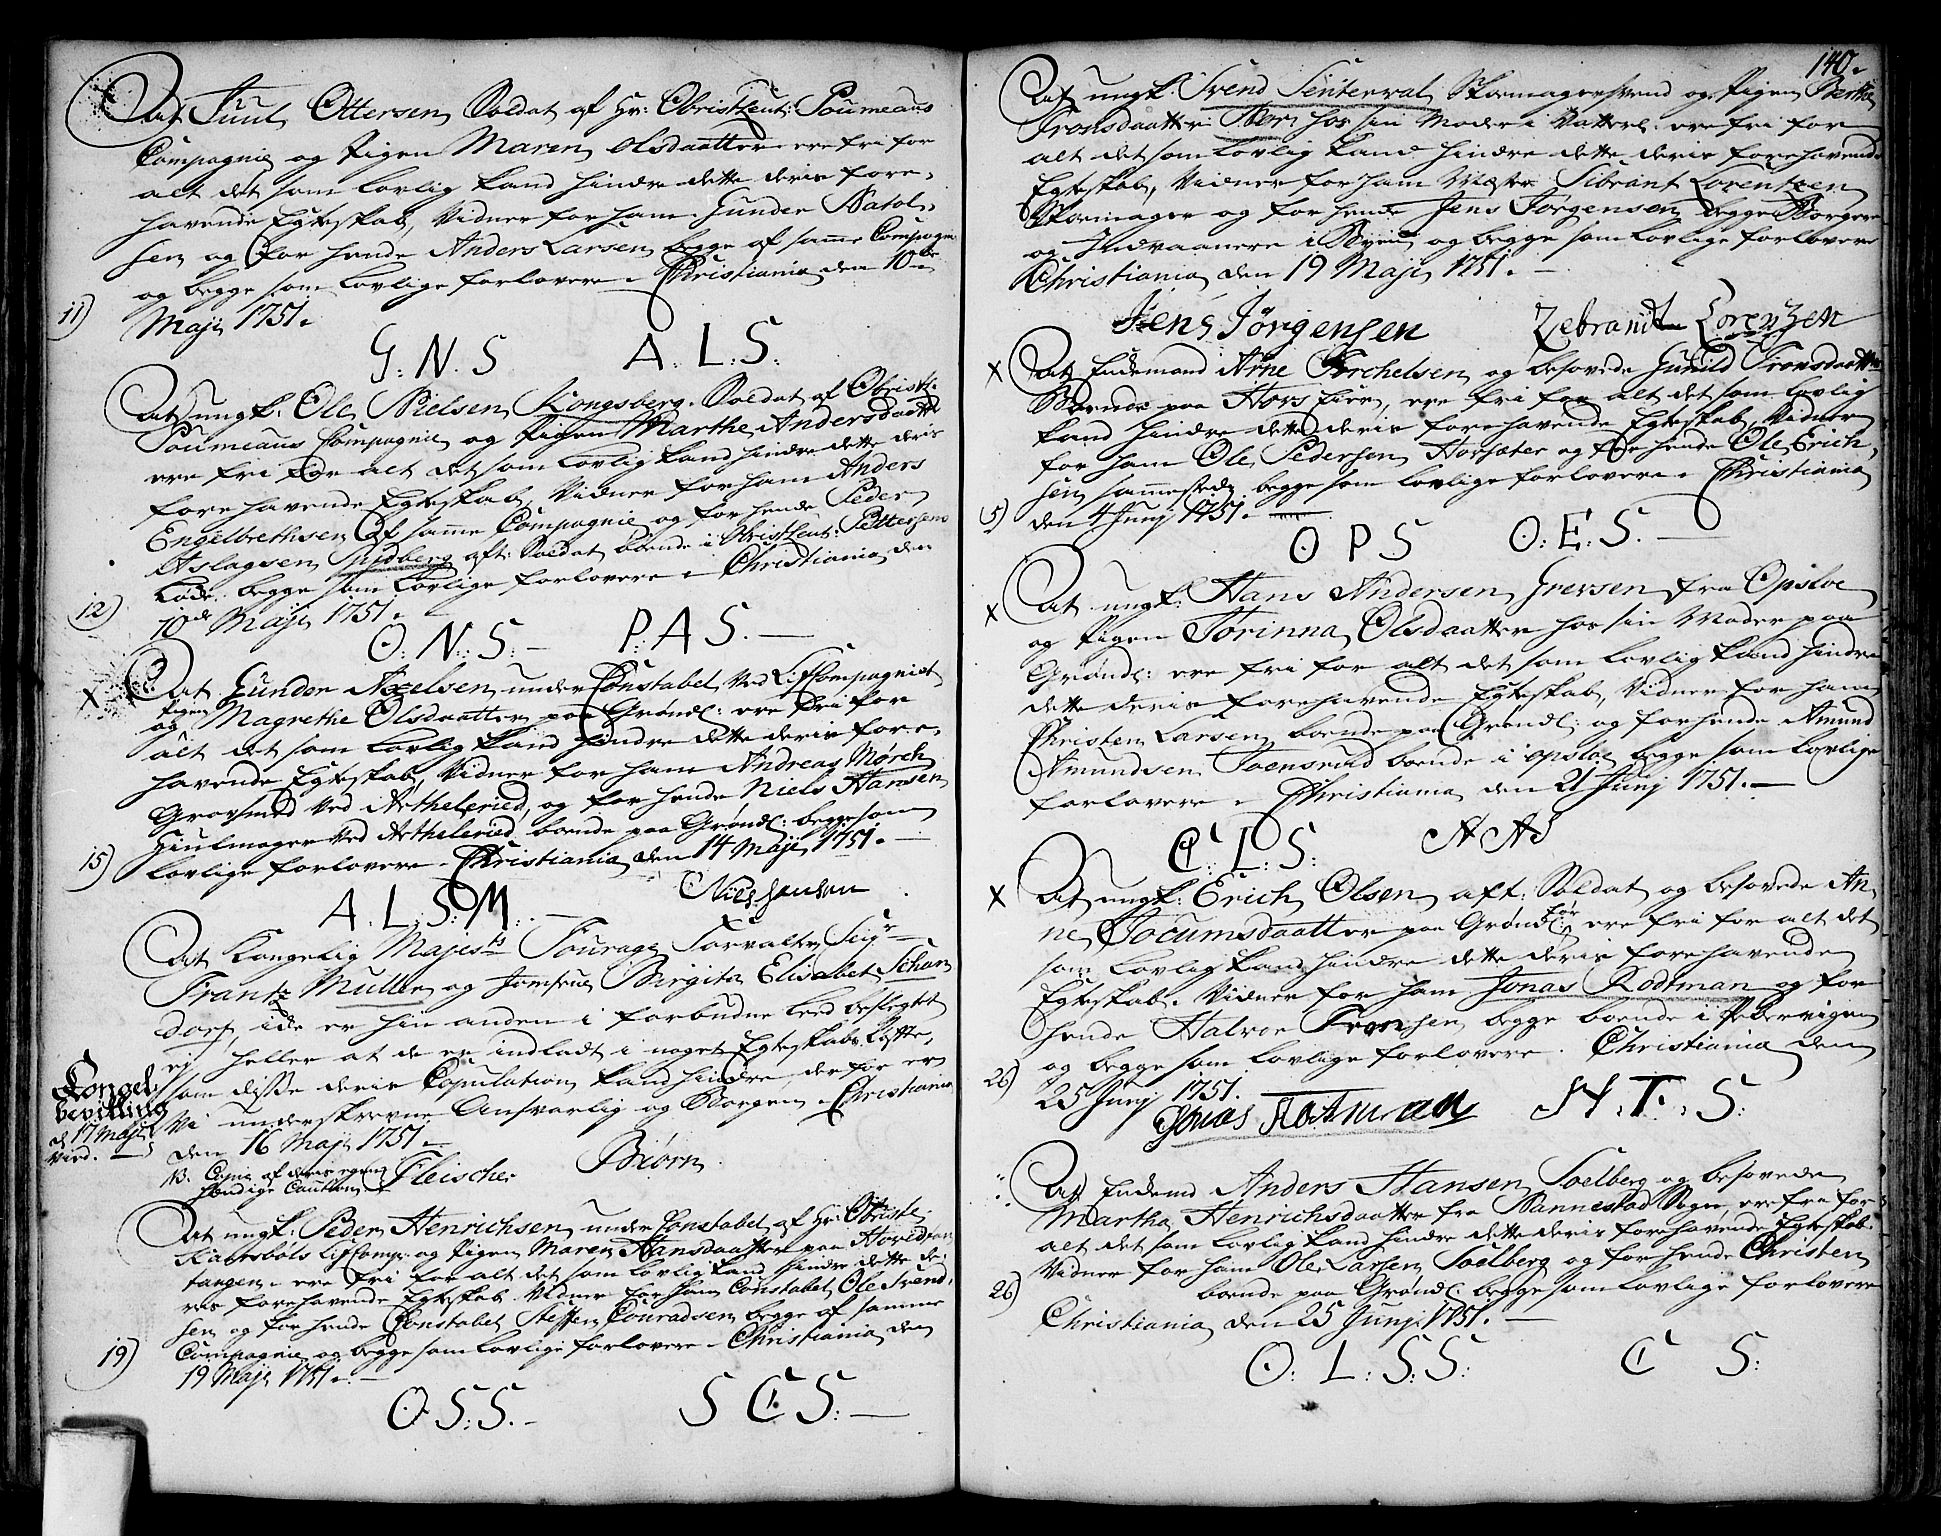 At Juul Ottersen Soldat af Hr: Obristleut: Poumeaus
Compagnie og Pigen Maren Olsdaatter ere fri for
alt det som lovlig kand hindre dette deris fore-
havende Egteskab, Vidner for ham Gunder Natol-
sen og for hende Anders Larsen begge af samme Compagnie
og begge som lovlige forlovere. Christiania den 10de
11)
Maji 1751.
G. N. S A. L: S:
At ungk: Ole Nielsen Kongsberg. Soldat af Obristl:
Poumeaus Compagnie og Pigen Marthe Andersdaatter
ere fri for alt det som lovlig kand hindre dette deris
forehavende Egteskab, Vidner for ham Anders
Engelbrethsen af samme Compagnie og for hende Peder
Aslagsen Sundberg aft: Soldat boende i Obristleut: Pettersens
Løde: begge som lovlige forlovere. Christiania den
12)
10de Maji 1751.
O. N: S: P: A S.
X At Gunder Axelsen under Constabel ved Lifcompagniet
og Pigen Magrethe Olsdaatter paa Grønl: ere fri for
alt det som lovlig kand hindre dette deris fore-
havende Egteskab, Vidner for ham Andreas Mørch
Grovsmed ved Artheleried, og for hende Niels Hansen
Hiulmager ved Artheleried boende paa Grønl: begge som
15)
lovlige forlovere. Christiania den 14 Maji 1751.
A. L. S: M: Niels Hansen
At Kongelig Majests Fourage Forvalter Seigr
Frantz Muller og Jomfrue Birgita Elisabet Schan
dorf, icke er hin anden i forbudne leed beslegtet
ej heller at de er indladt i noget Egteskabs Løfte,
som disse deris Copulation kand hindre, derfor er
Kongel:
bevilling
d 17 Maji
Vied.
Vi underskrevne Ansvarlig og Borgen. Christiania
den 16 Maji 1751.
NB. Copie af deres egen
hændige Caution Fleischer Biørn
At ungk: Peder Henrichsen under Constabel af Hr: Obristl:
Kalebols Lifcomp: og Pigen Maren Hansdaatter paa Hoved
tangen. ere fri for alt det som lovlig kand hindre dette de-
res forehavende Egteskab. Vidner for ham Constabel Ole Svend-
sen og for hende Constabel Steffen Conradsen begge af samme
Compagnie og begge som lovlige forlovere. Christiania den
19)
19 Maji 1751.
O S: S. S C S:
140.
At ungk. Svend Senterval Skomagersvend og Pigen Berthe
Tronsdaatter Born hos sin Moder i Vatterl: ere fri for
alt det som lovlig kand hindre dette deris forehavende
Egteskab, Vidner for ham Mester Sibrant Lorentzen
Skomager og for hende Jens Jørgensen begge Borgere
og Indvaanere i Byen og begge som lovlige forlovere
Christiania den 19 Maji 1751.
Jens Jörgensen Zebrandt Lorenzen
X At Enkemand Arne Torchelsen og besovede Gunild Tronsdaatter
Boende paa Hors Eier, ere fri for alt det som lovlig
kand hindre dette deris forehavende Egteskab, Vidner
for ham Ole Pedersen Horsæter og for hende Ole Erich-
sen sammested, begge som lovlige forlovere. Christiania
5)
den 4 Junj 1751.
O P S O: E: S.
X At ungk: Hans Andersen Grevsen fra Opsloe
og Pigen Torinna Olsdaatter hos sin Moder paa
Grønl: ere fri for alt det som lovlig kand hindre
dette deris forehavende Egteskab, Vidner for ham
Christen Larsen boende paa Grønl: og for hende Amund
Amundsen Toensrud boende i opsloe begge som lovlige
forlovere. Christiania den 21 Junj 1751.
C: L: S: A A S
X At ungk: Erich Olsen aft: Soldat og besovede An-
ne Jocumsdaatter paa Grønl: ere fri for alt det
som lovlig kand hindre dette deris forehavende
Egteskab. Vidner for ham Jonas Rodtman og for
hende Halvor Tronsen begge boende i Pebervigen
og begge som lovlige forlovere. Christiania den
26)
25 Junj 1751.
Jonas Rotman H. T. S:
At Enkemd Anders Hansen Soelberg og besovede
Martha Henrichsdaatter fra Nannestad Sogn, ere fra for
alt det som lovlig kand hindre dette deris forehavende Egteskab.
Vidner for ham Ole Larsen Soelberg og for hende Christen
26)
boende paa Grønl: begge som lovlige forlovere
Christiania den 25 Junj 1751.
O: L: S: S: C S: